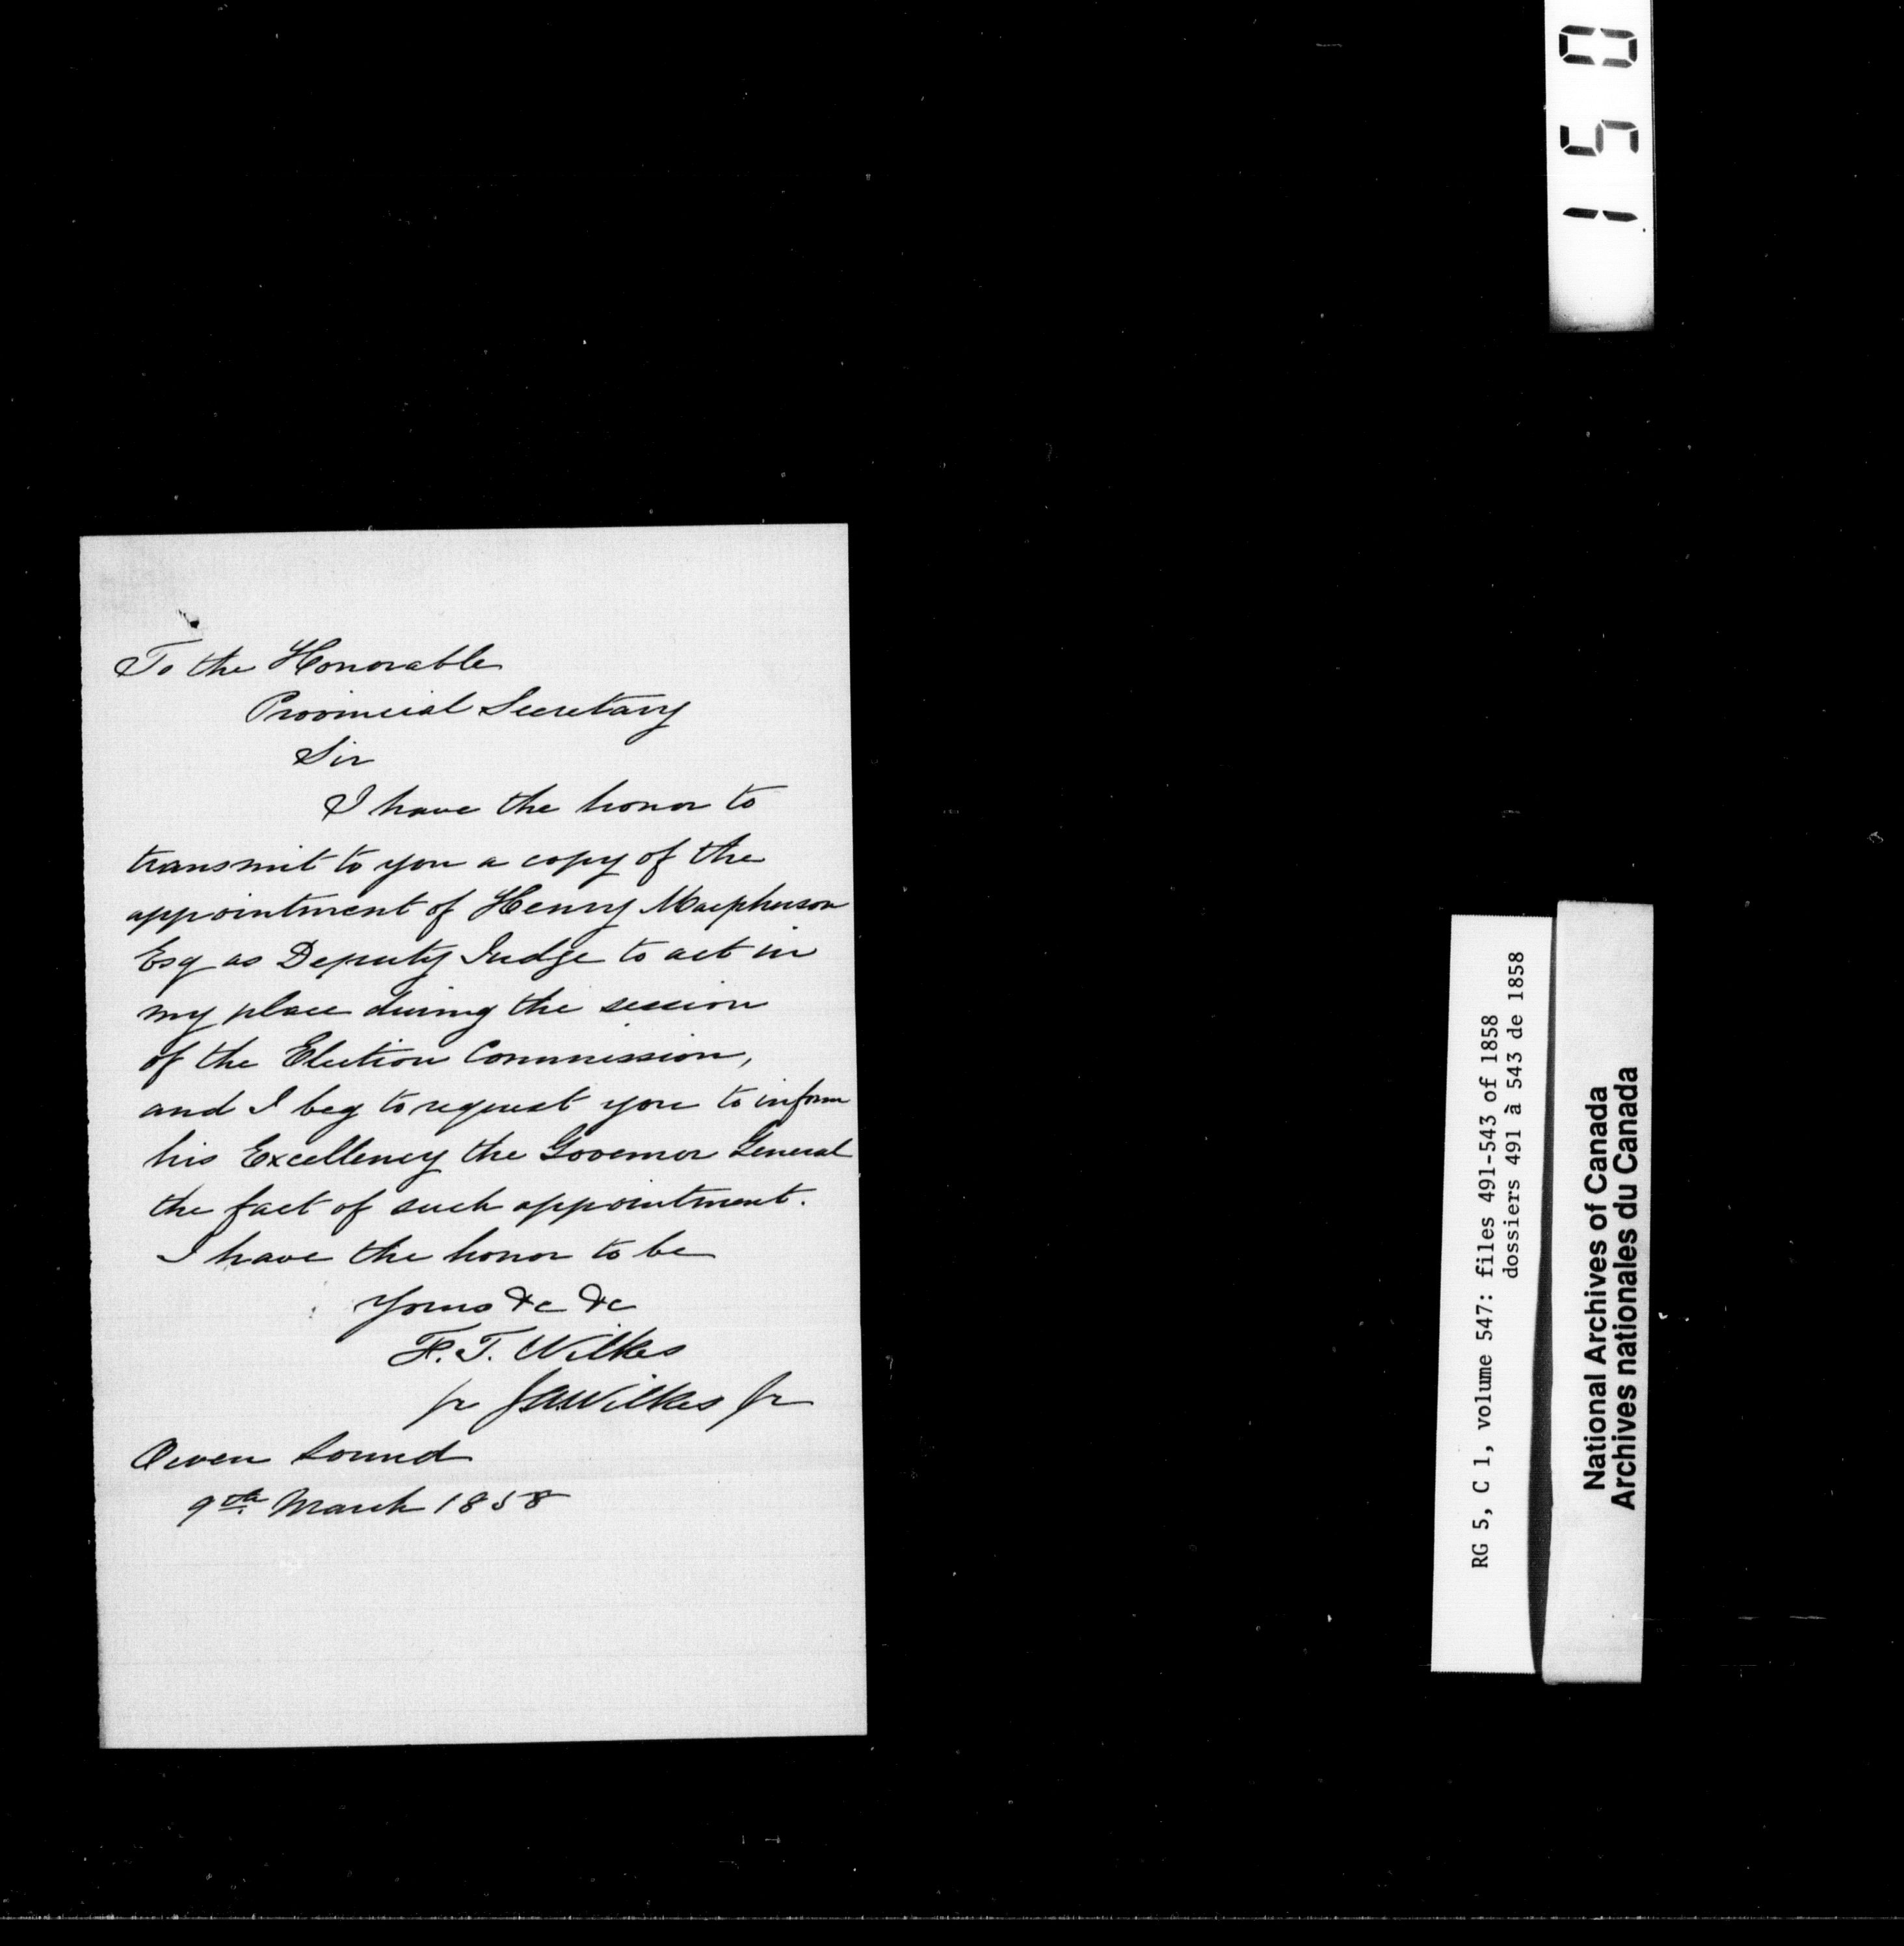 To the Honorable
Provincial Secretary
Sir
I have the honor to
transmit to you a copy of the
appointment of Henry Macpherson
Esq as Deputy Judge to act in
my place during the session
of the Election Commission,
and I beg to request you to inform
his Excellency the Governor General
the fact of such appointment.
I have the honor to be
Yours &c &c
F. T. Wilkes
pr J A Wilkes Jr
Owen Sound
9th March 1858
1 5 0
RG 5, C 1, volume 547: files 491-543 of 1858
dossiers 491 à 543 de 1858
National Archives of Canada
Archives nationales du Canada